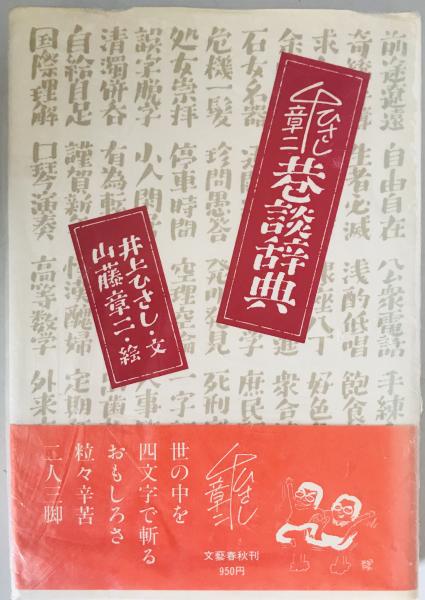 ひさし
章二
巷談辞典
井上ひさし・文
山藤章二・絵
前途遼遠 自由自在 公衆電話 手練
生者必滅 浅酌低唱 飽食
座八丁 好色
石女名器 庶民
危機一髪 珍問愚答 発明発見 死刑
処女崇拝 停車時間 空理空論 一字
誤字脱字 小人閑 人事
清濁併呑 有為転
自給自足 謹賀新 醜婦 定期
国際理解 口琴演奏 高等数学 外来
世の中を
四文字で斬る
おもしろさ
粒々辛苦
二人三脚
ひさし
章二
文藝春秋刊
950円